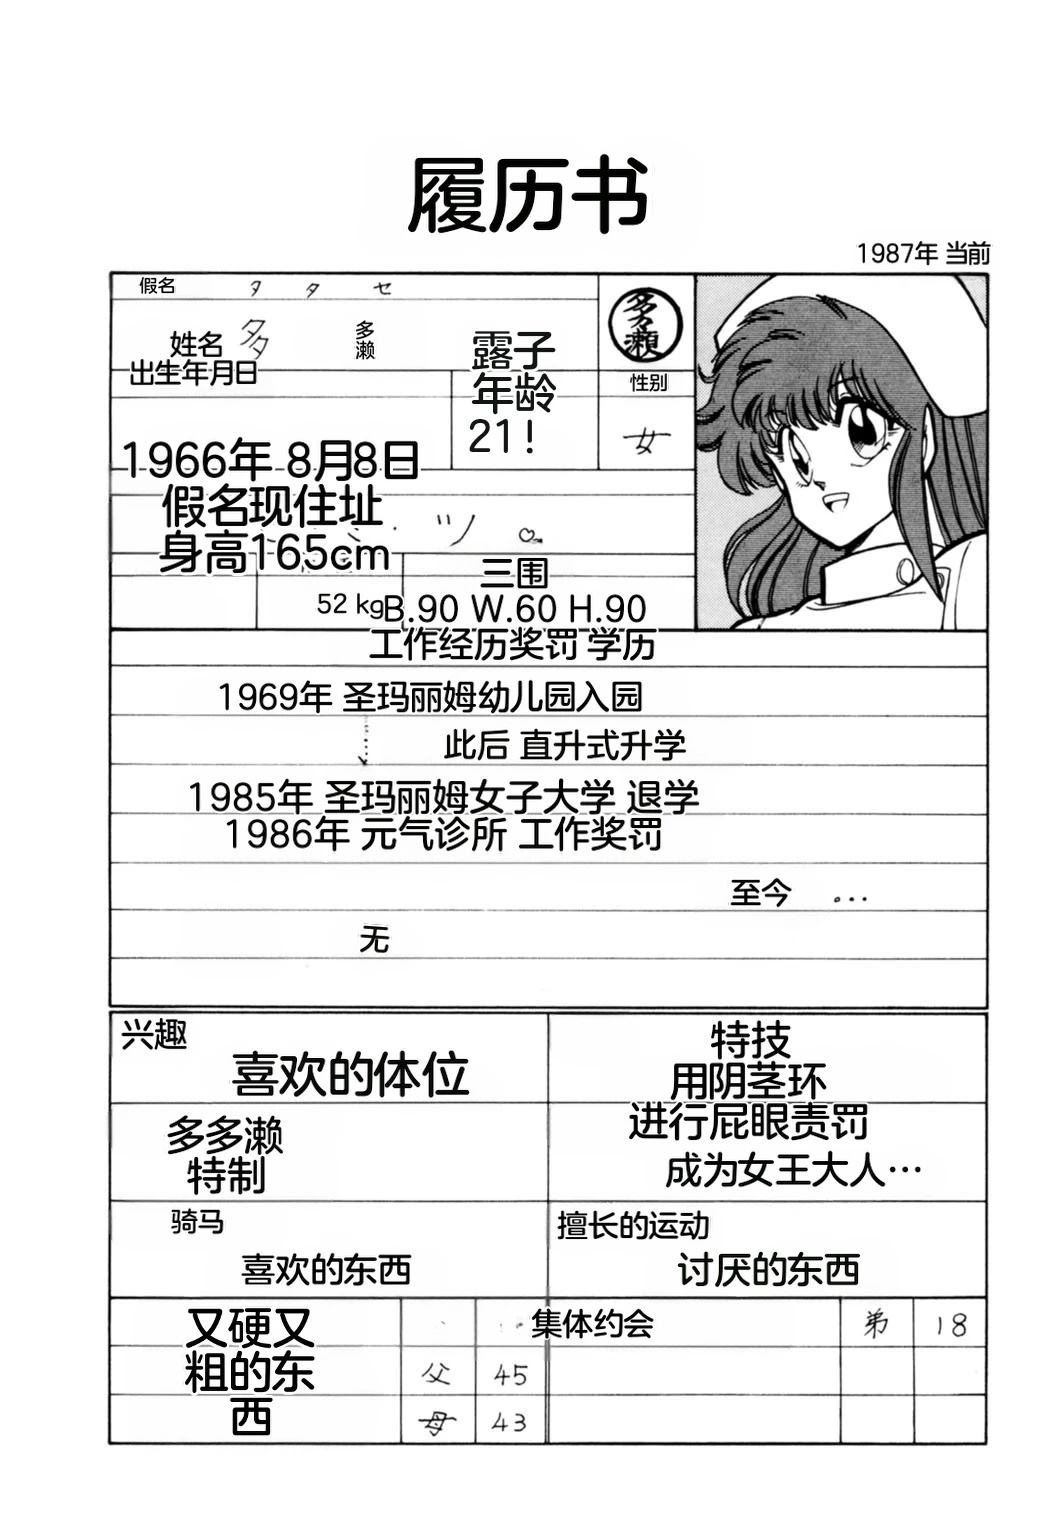 履历书
1987年 当前
假名 タ タ セ
多々瀬
姓名 多々 多濑
露子
出生年月日
年龄
性别
21！
女
1966年 8月8日
假名现住址
ツ
身高165cm
三围
52 kg B.90 W.60 H.90
工作经历奖罚 学历
1969年 圣玛丽姆幼儿园入园
此后 直升式升学
1985年 圣玛丽姆女子大学 退学
1986年 元气诊所 工作奖罚
至今 ...
无
兴趣
喜欢的体位
特技
用阴茎环
进行屁眼责罚
成为女王大人…
多多濑
特制
骑马
喜欢的东西
擅长的运动
讨厌的东西
又硬又
粗的东
西
集体约会
弟 18
父 45
母 43